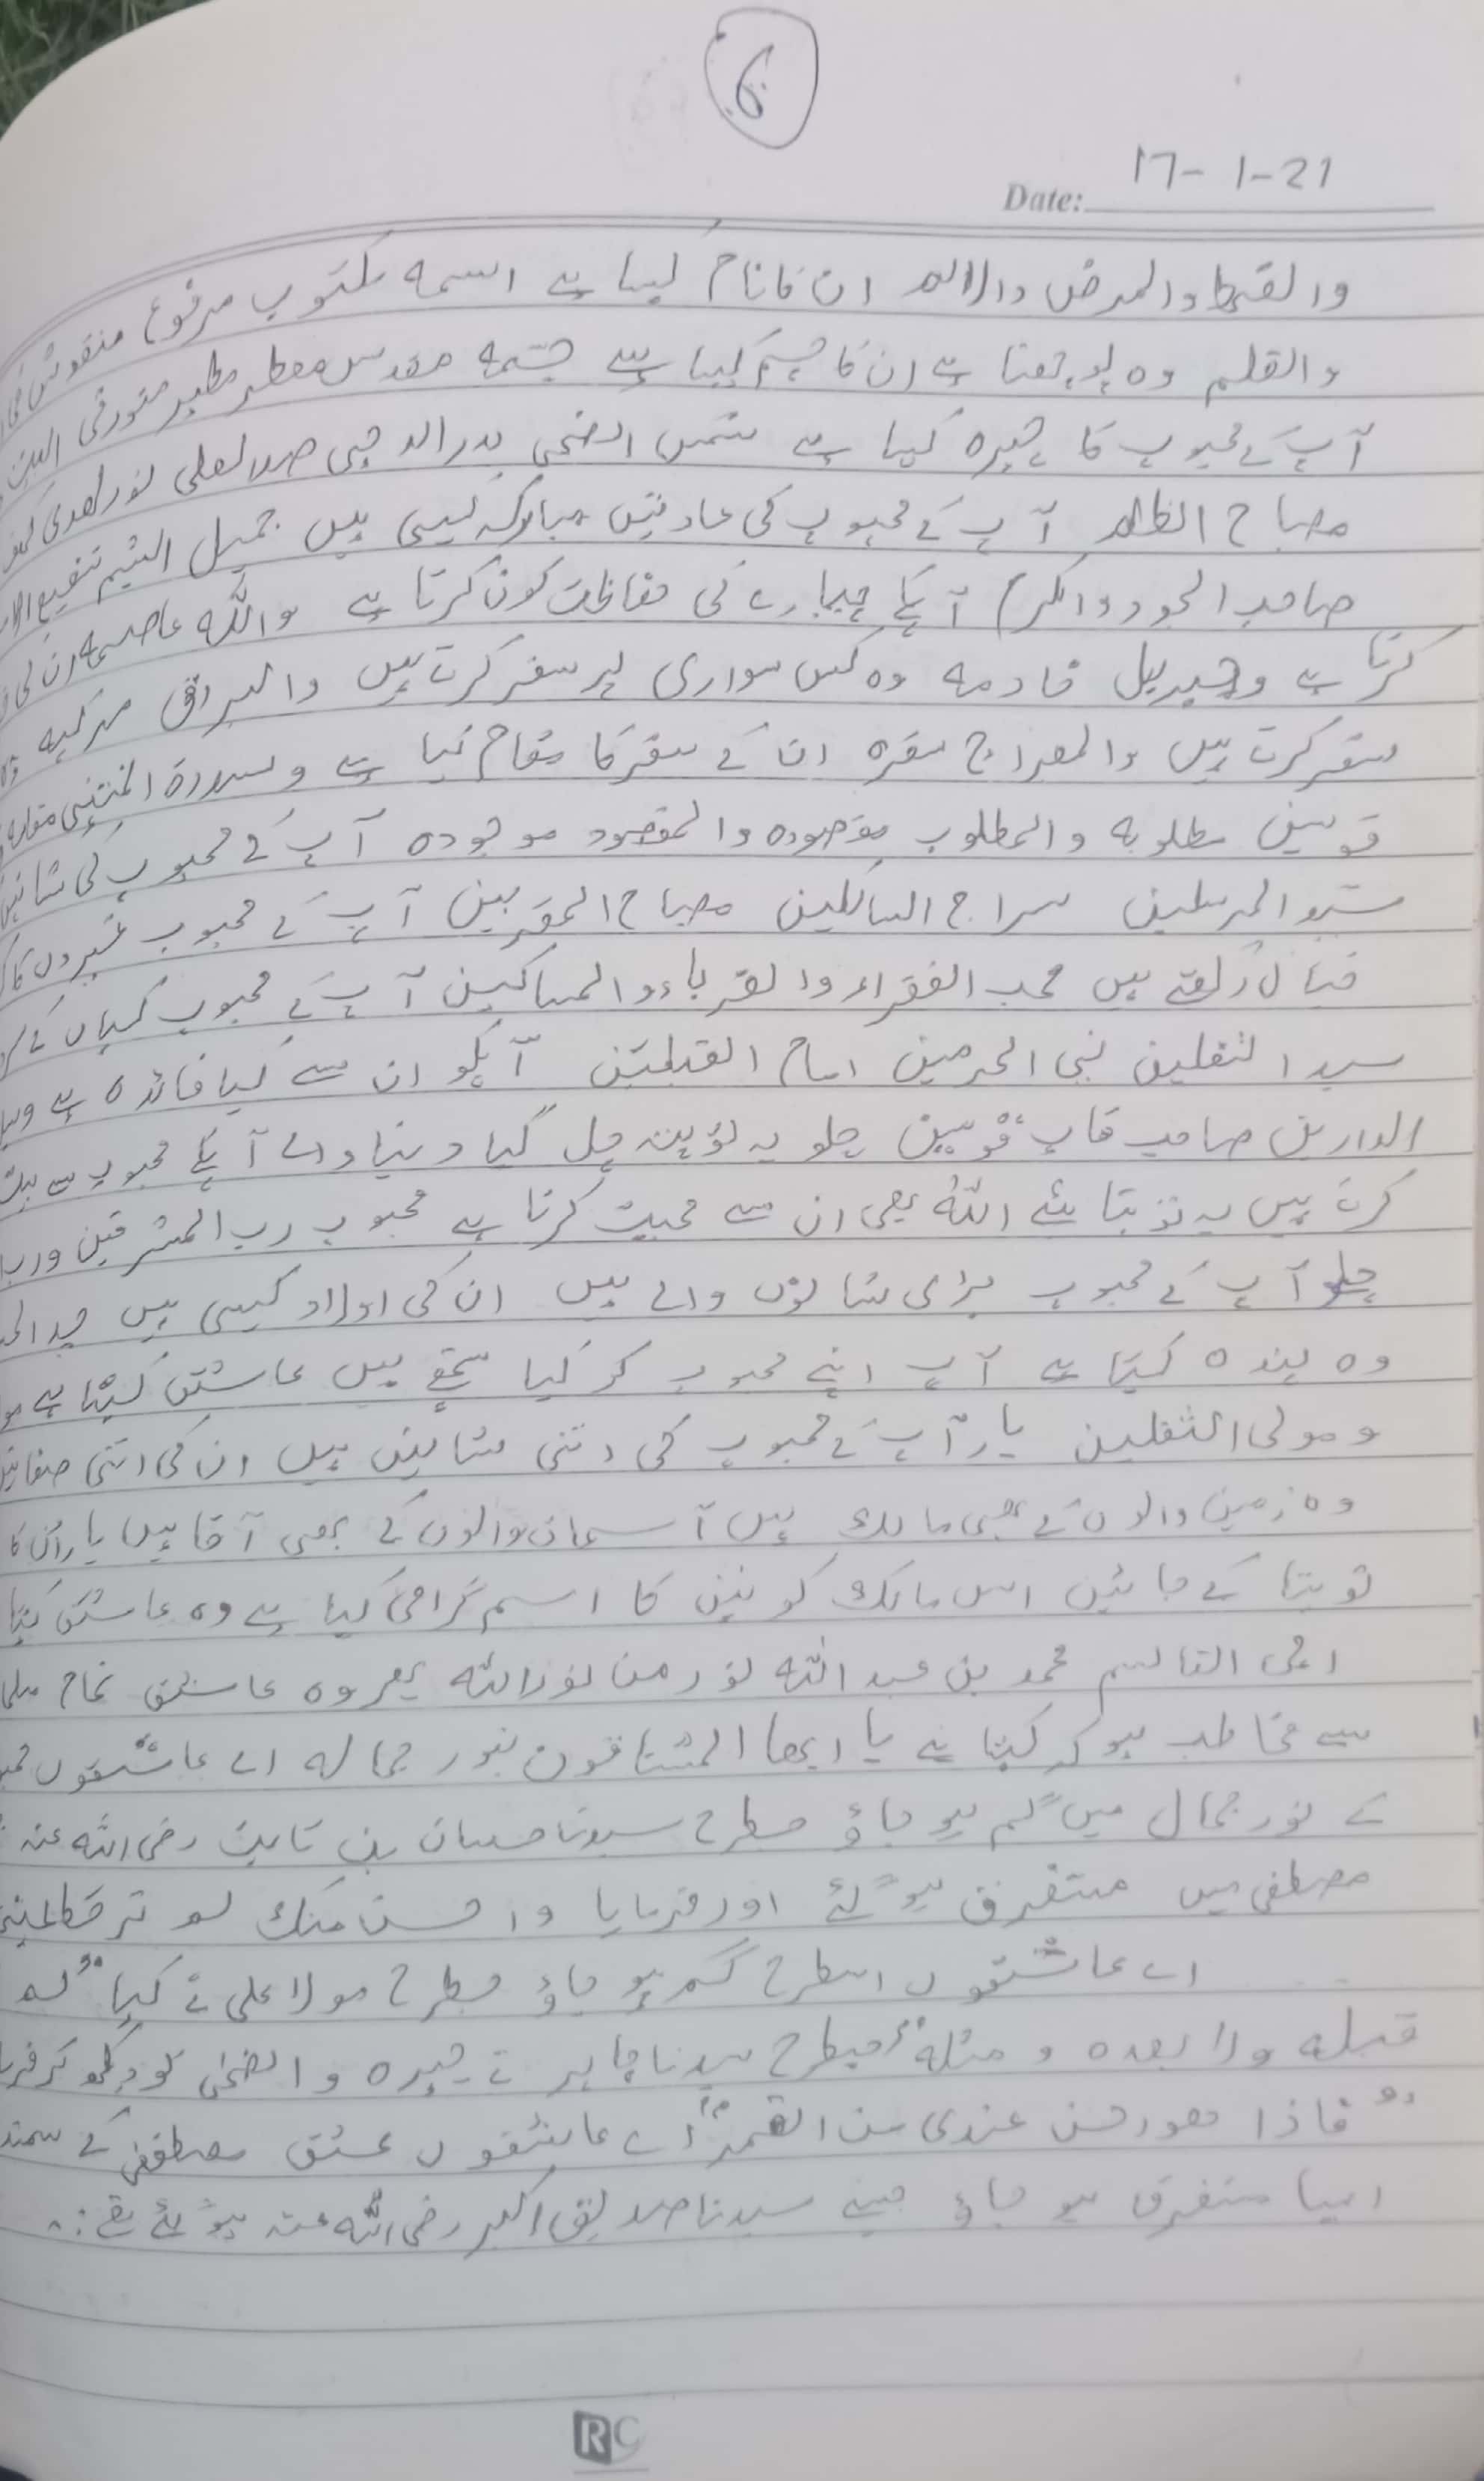 6
Date: 17-1-21
والقحط والمرض والالم ان کا نام کیسا ہے اسمه مکتوب مرفوع منقوش فی
والقلم وہ پوچھتا ہے ان کا جسم کیسا ہے جسمه مقدس معطر مطہر منور فی البیت
آپ کے محبوب کا چہرہ کیسا ہے شمس الضحی بدر الدجی صدر العلی نور الھدی کہف
مصباح الظلم آپ کے محبوب کی عادتیں مبارکہ کیسی ہیں جمیل الشیم شفیع الامم
صاحب الجود والکرم آپکے پیارے کی حفاظت کون کرتا ہے واللہ عاصمه ان کی
کرتا ہے وجبریل خادمه وہ کس سواری پر سفر کرتے ہیں والبراق مرکبه
سفر کرتے ہیں والمعراج سفرہ ان کے سفر کا مقام کیا ہے وسدرۃ المنتہی مقامه
قوسین مطلوبه والمطلوب مقصودہ والمقصود موجودہ آپ کے محبوب کی شانیں
سید المرسلین سراج السالکین مصباح المقربین آپ کے محبوب غیروں کا
خیال رکھتے ہیں محب الفقراء والغرباء والمساکین آپ کے محبوب کہاں کے
سید الثقلین نبی الحرمین امام القبلتین آپکو ان سے کیا فائدہ ہے
الدارین صاحب قاب قوسین چلو یہ تو پتہ چل گیا دنیا والے آپکے محبوب سے
کرتے ہیں یہ تو بتائیے اللہ بھی ان سے محبت کرتا ہے محبوب رب المشرقین ورب
چلو آپ کے محبوب بڑی شانوں والے ہیں ان کی اولاد کیسی ہیں جد
وہ بندہ کہتا ہے آپ اپنے محبوب کو کیا سمجھتے ہیں عاشق کہتا ہے
ومولی الثقلین یار آپ کے محبوب کی اتنی شانیں ہیں ان کی اتنی صفات
وہ زمین والوں کے بھی مالک ہیں آسمان والوں کے بھی آقا ہیں یار ان کا
تو بتا کے جائیں اس مالک کونین کا اسم گرامی کیا ہے وہ عاشق کہتا
ابی القاسم محمد بن عبد اللہ نور من نور اللہ پھر وہ عاشق تمام
سے مخاطب ہو کر کہتا ہے یا ایھا المشتاقون بنور جماله اے عاشقوں
کے نور جمال میں گم ہو جاؤ جسطرح سیدنا حسان بن ثابت رضی اللہ عنہ
مصطفی میں مستغرق ہو گئے اور فرمایا واحسن منک لم تر قط
اے عاشقوں اسطرح گم ہو جاؤ جسطرح مولا علی نے کہا "لم
قبله ولا بعدہ مثله" جسطرح سیدنا جابر نے چہرہ والضحی کو دیکھ کر
"فاذا ھو احسن عندی من القمر" اے عاشقوں عشق مصطفی کے
ایسا مستغرق ہو جاؤ جیسے سیدنا صدیق اکبر رضی اللہ عنہ ہو گئے تھے
RC